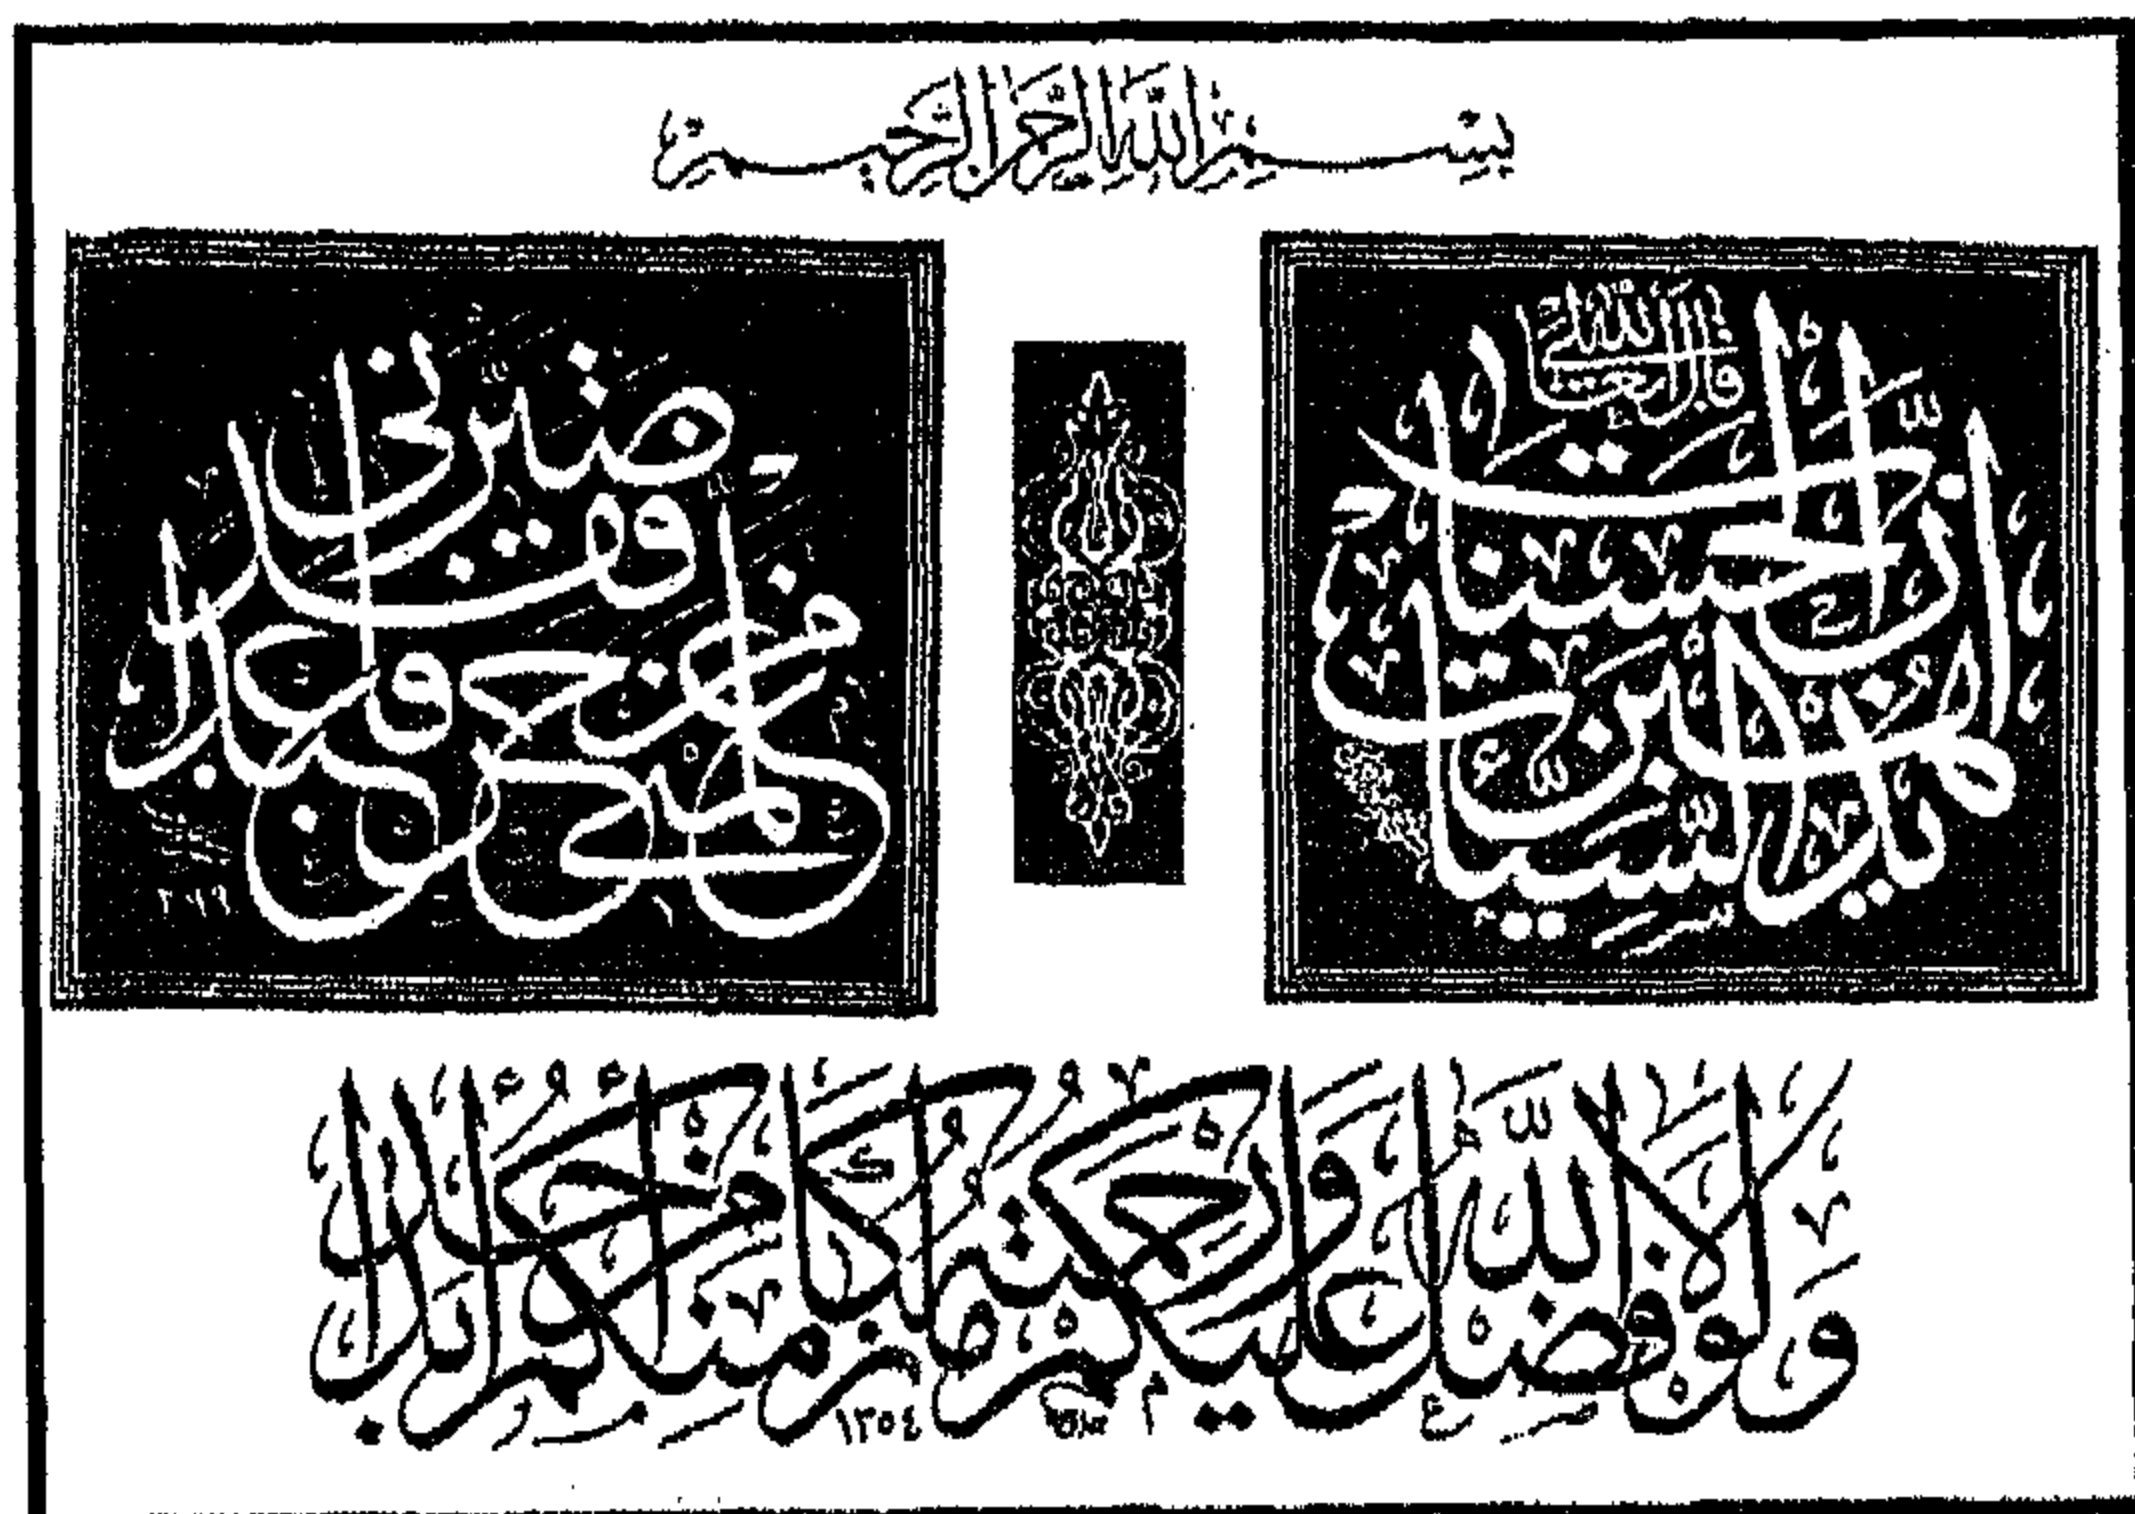 بسم الله الرحمن الرحيم
قال الله تعالى
إن الحسنات يذهبن السيئات
من علمني حرفا فقد صيرني عبدا
ولولا فضل الله عليكم ورحمته ما زكى منكم من أحد أبدا
١٣٥٤